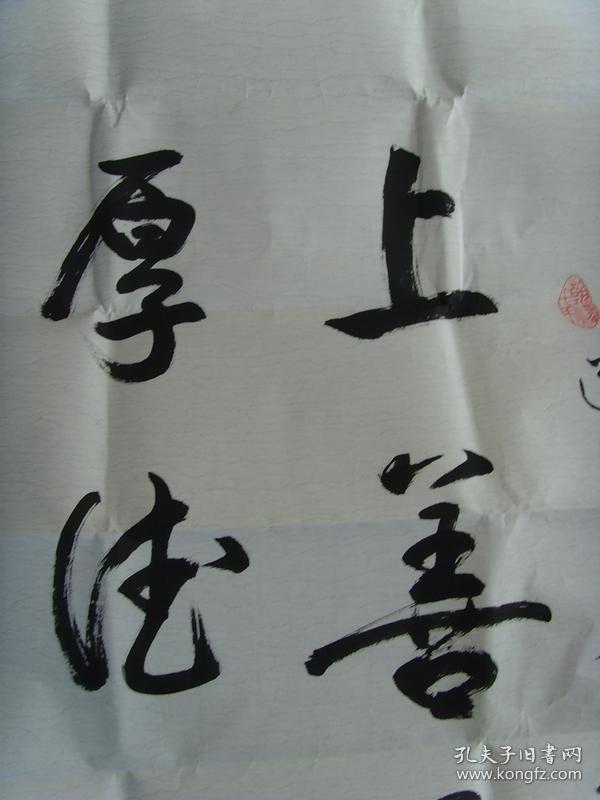 上善
厚德
孔夫子旧書网
www.kongfz.com